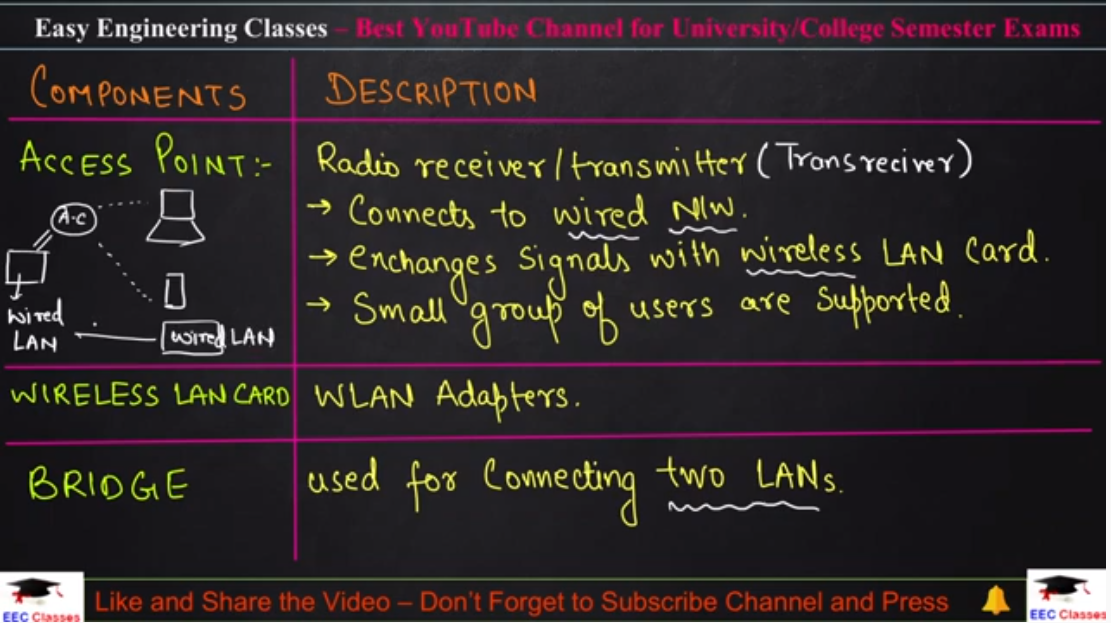 Easy Engineering Classes – Best YouTube Channel for University/College Semester Exams
COMPONENTS DESCRIPTION
ACCESS POINT:- Radio receiver/transmitter (Transreciver)
→ Connects to wired N/W.
→ enchanges Signals with wireless LAN Card.
→ Small group of users are Supported.
A.C
wired
LAN
wired LAN
WIRELESS LAN CARD WLAN Adapters.
BRIDGE used for Connecting two LANs.
Like and Share the Video – Don't Forget to Subscribe Channel and Press
EEC Classes
EEC Classes